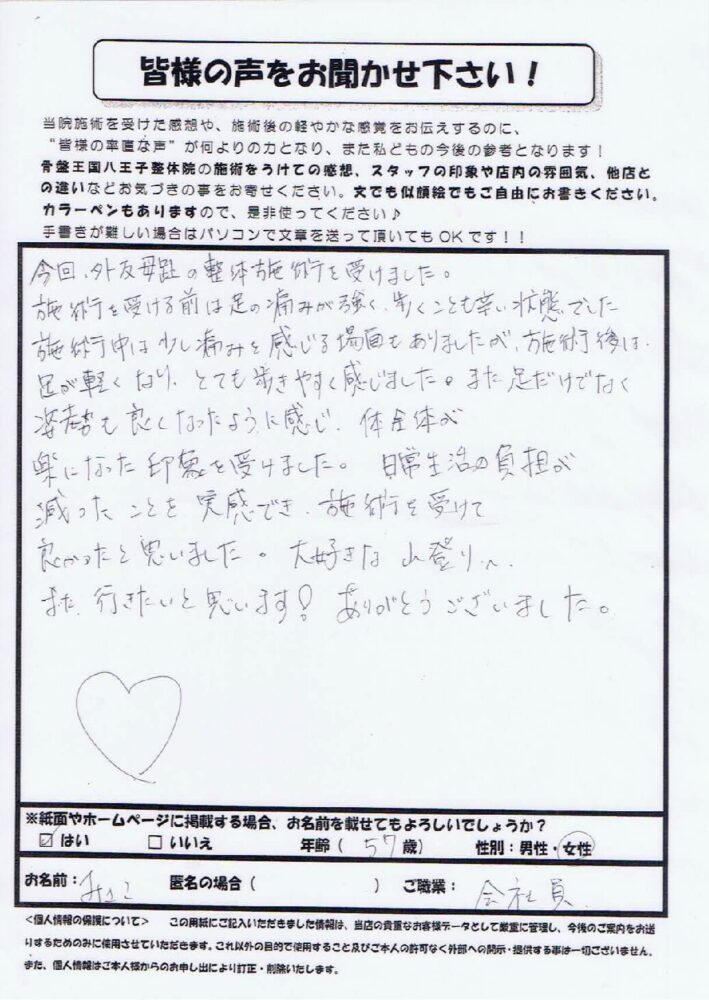 皆様の声をお聞かせ下さい！
当院施術を受けた感想や、施術後の軽やかな感覚をお伝えするのに、
“皆様の率直な声”が何よりの力となり、また私どもの今後の参考となります！
骨盤王国八王子整体院の施術をうけての感想、スタッフの印象や店内の雰囲気、他店と
の違いなどお気づきの事をお寄せください。文でも似顔絵でもご自由にお書きください。
カラーペンもありますので、是非使ってください♪
手書きが難しい場合はパソコンで文章を送って頂いてもOKです！！
今回、外反母趾の整体施術を受けました。
施術を受ける前は足の痛みが強く、歩くことも辛い状態でした
施術中は少し痛みを感じる場面もありましたが、施術後は、
足が軽くなり、とても歩きやすく感じました。また足だけでなく
姿勢も良くなったように感じ、体全体が
楽になった印象を受けました。日常生活の負担が
減ったことを実感でき、施術を受けて
良かったと思いました。大好きな山登りへ、
また、行きたいと思います！ありがとうございました。
※紙面やホームページに掲載する場合、お名前を載せてもよろしいでしょうか？
☑はい □いいえ 年齢（57歳） 性別：男性・女性
お名前： 匿名の場合（ ） ご職業：会社員
<個人情報の保護について> この用紙にご記入いただきました情報は、当店の貴重なお客様データとして厳重に管理し、今後のご案内をお送
りするためのみに使用させていただきます。これ以外の目的で使用すること及びご本人の許可なく外部への開示・提供する事は一切ございません。
また、個人情報はご本人様からのお申し出により訂正・削除いたします。